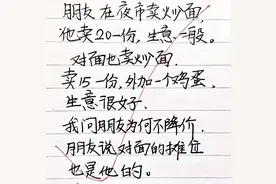 朋友在夜市卖炒面,
他卖20一份,生意一般。
对面也卖炒面.
卖15一份,外加一个鸡蛋,
生意很好.
我问朋友为何不降价.
朋友说对面的摊位
也是他的。